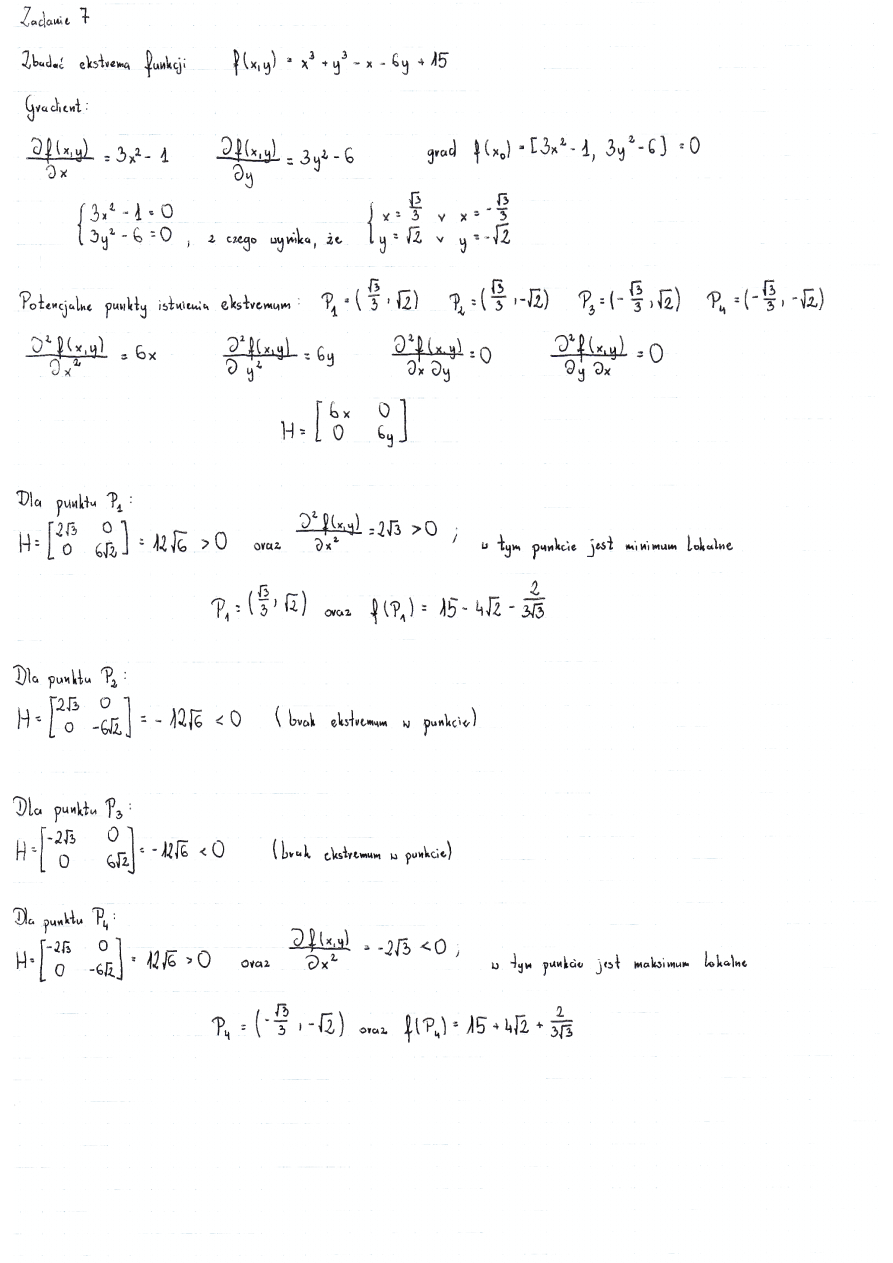 Zadanie 7
Zbadać ekstrema funkcji f(x,y) = x³ + y³ - x - 6y + 15
Gradient:
∂f(x,y)/∂x = 3x² - 1 ∂f(x,y)/∂y = 3y² - 6 grad f(x₀) = [3x² - 1, 3y² - 6] = 0
{3x² - 1 = 0 {x = √3/3 v x = -√3/3
{3y² - 6 = 0, z czego wynika, że {y = √2 v y = -√2
Potencjalne punkty istnienia ekstremum: P₁ = (√3/3, √2) P₂ = (√3/3, -√2) P₃ = (-√3/3, √2) P₄ = (-√3/3, -√2)
∂²f(x,y)/∂x² = 6x ∂²f(x,y)/∂y² = 6y ∂²f(x,y)/∂x∂y = 0 ∂²f(x,y)/∂y∂x = 0
H = [6x 0
0 6y]
Dla punktu P₁:
H = [2√3 0
0 6√2] = 12√6 > 0 oraz ∂²f(x,y)/∂x² = 2√3 > 0 ; w tym punkcie jest minimum lokalne
P₁ = (√3/3, √2) oraz f(P₁) = 15 - 4√2 - 2/3√3
Dla punktu P₂:
H = [2√3 0
0 -6√2] = - 12√6 < 0 (brak ekstremum w punkcie)
Dla punktu P₃:
H = [-2√3 0
0 6√2] = - 12√6 < 0 (brak ekstremum w punkcie)
Dla punktu P₄:
H = [-2√3 0
0 -6√2] = 12√6 > 0 oraz ∂f(x,y)/∂x² = -2√3 < 0 ; w tym punkcie jest maksimum lokalne
P₄ = (-√3/3, -√2) oraz f(P₄) = 15 + 4√2 + 2/3√3